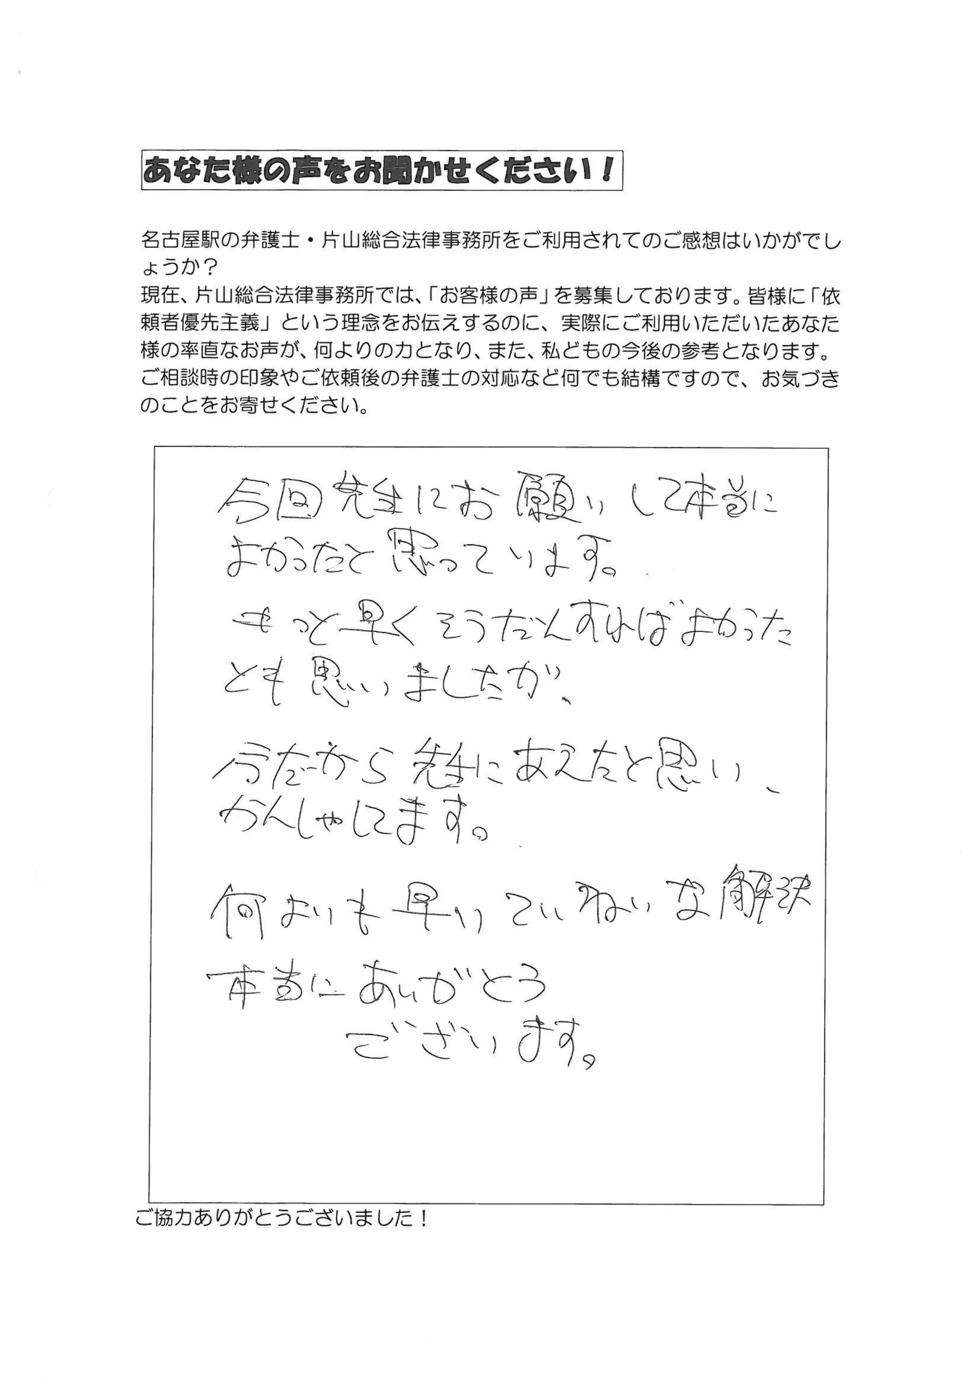 あなた様の声をお聞かせください！
名古屋駅の弁護士・片山総合法律事務所をご利用されてのご感想はいかがでし
ょうか？
現在、片山総合法律事務所では、「お客様の声」を募集しております。皆様に「依
頼者優先主義」という理念をお伝えするのに、実際にご利用いただいたあなた
様の率直なお声が、何よりの力となり、また、私どもの今後の参考となります。
ご相談時の印象やご依頼後の弁護士の対応など何でも結構ですので、お気づき
のことをお寄せください。
今回先生にお願いして本当に
よかったと思っています。
もっと早くそうだんすればよかった
とも思いましたが、
今だから先生にあえたと思い、
かんしゃしてます。
何よりも早いていねいな解決
本当にありがとう
ございます。
ご協力ありがとうございました！